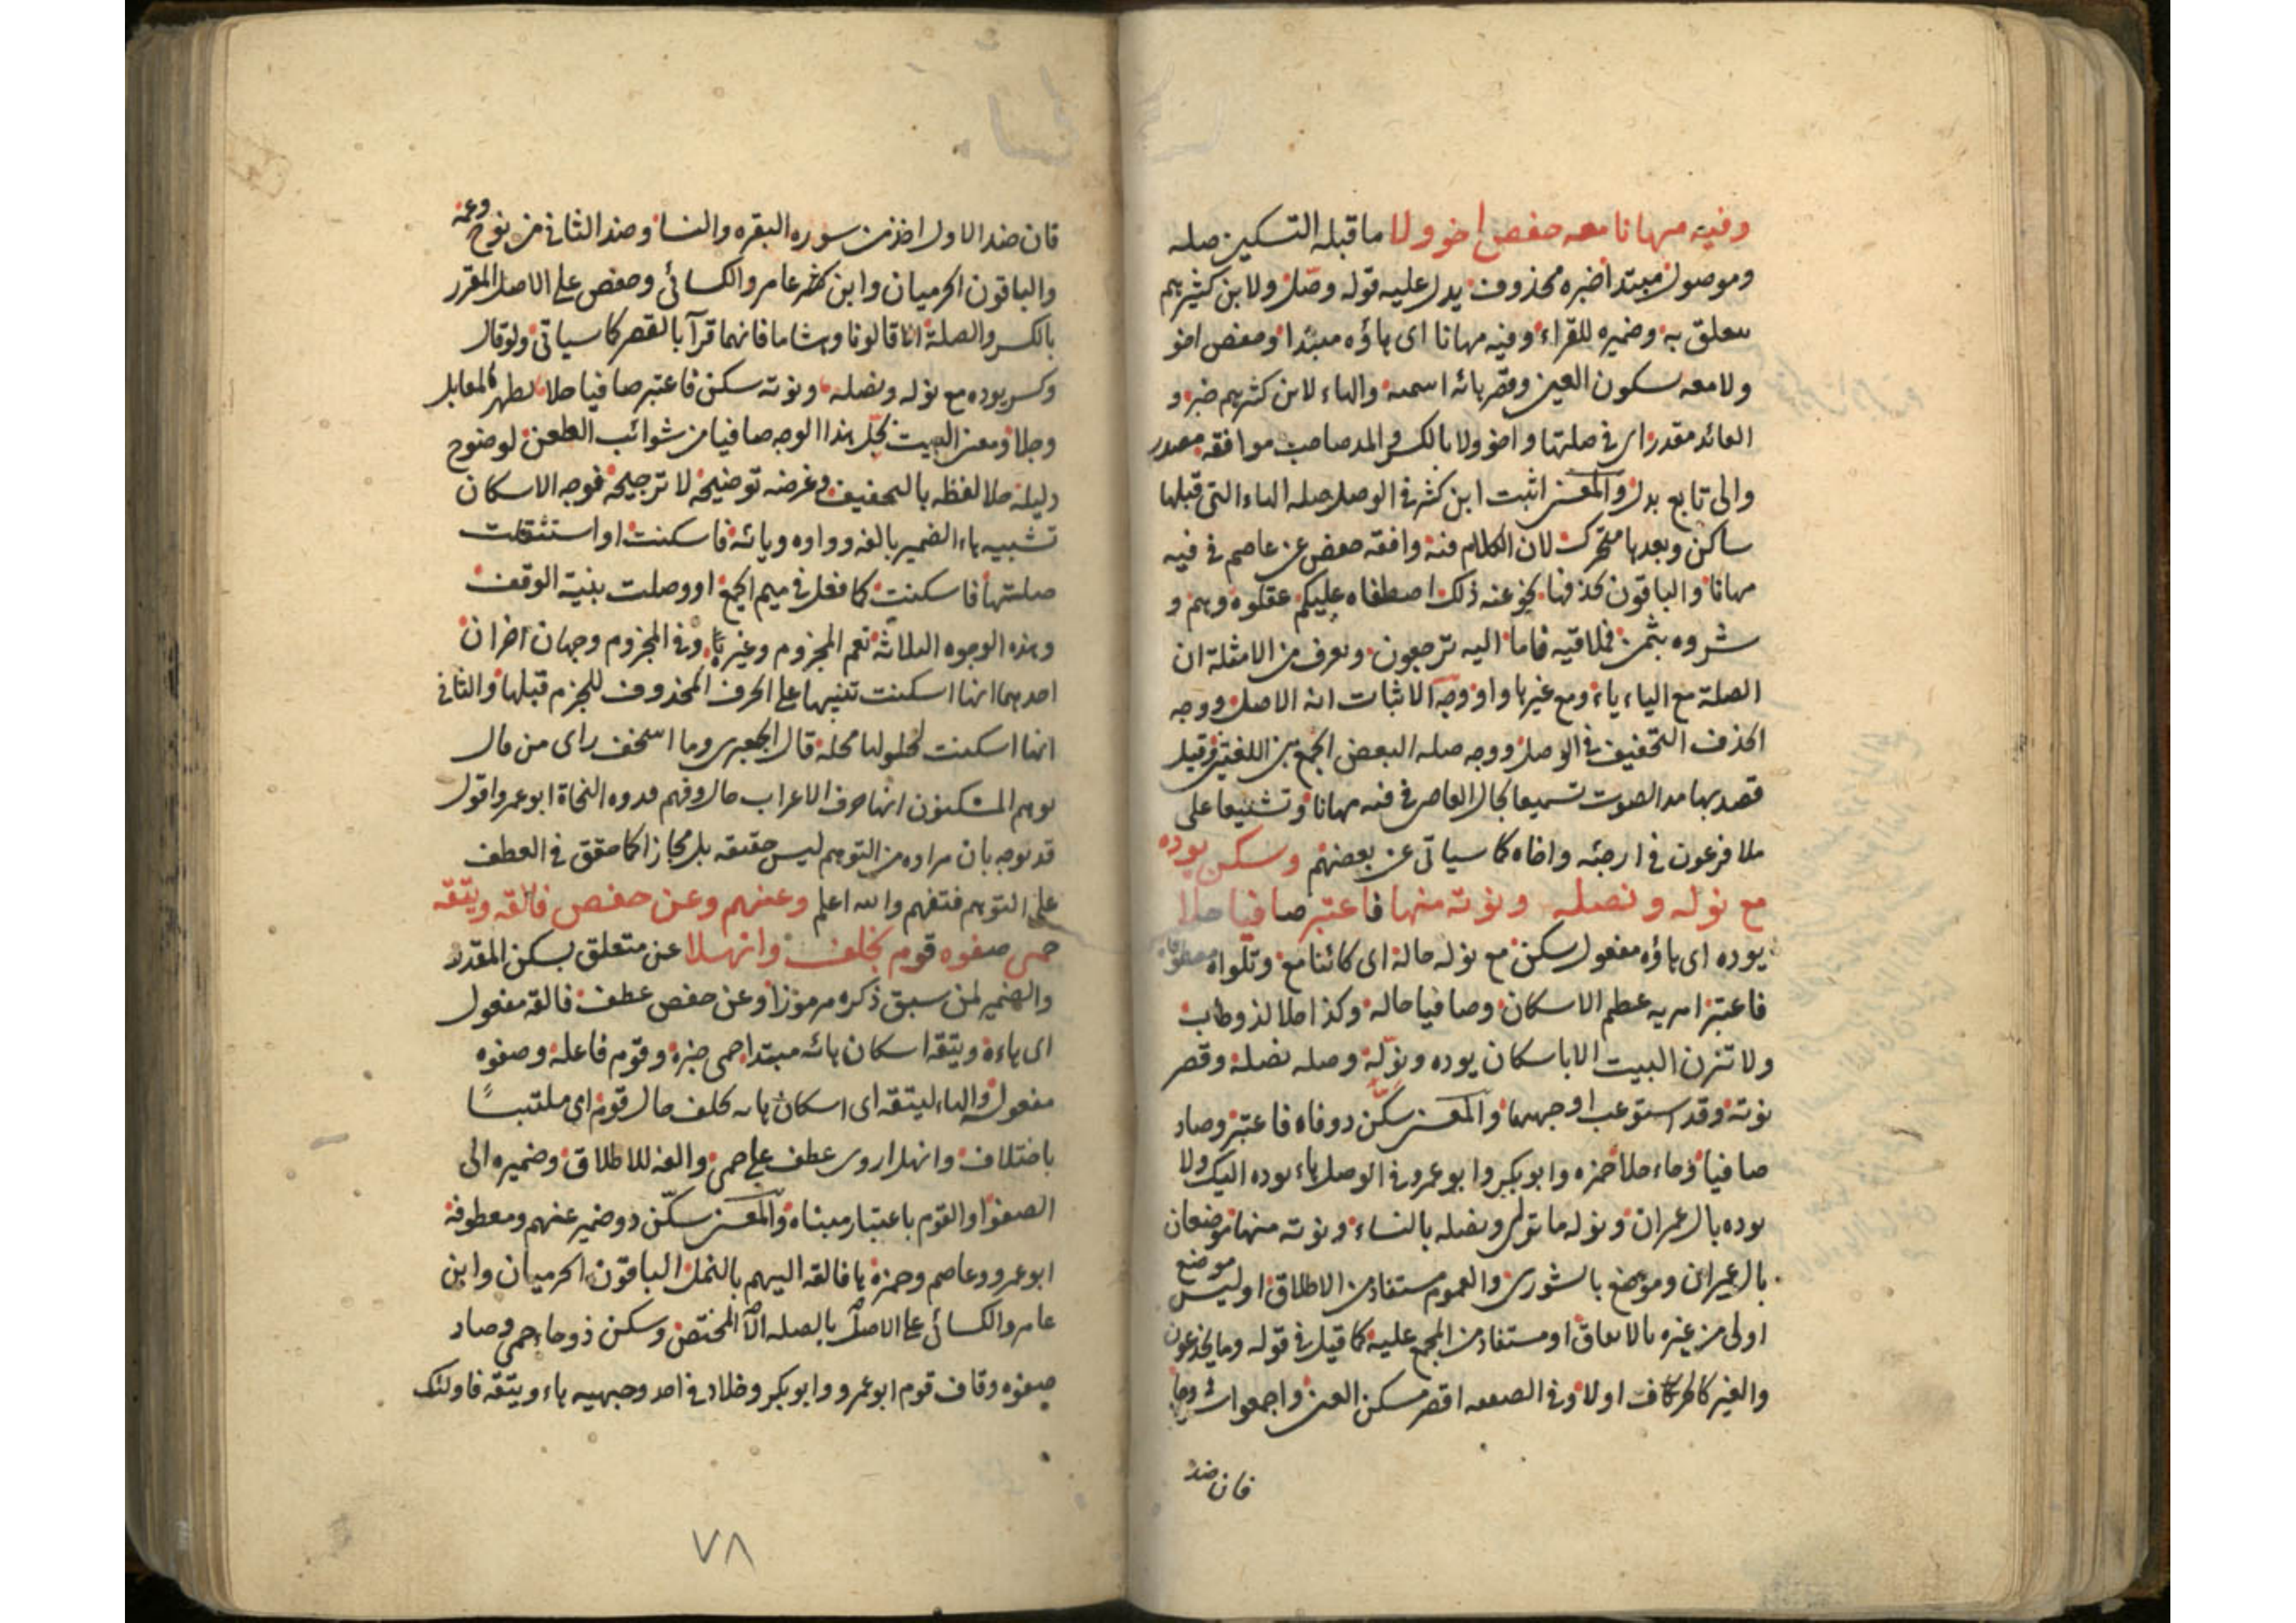 وفيه مهانا معه حفص اخو ولا ما قبله التسكين صله
وموصول مبتدا خبره محذوف يدل عليه قوله وصل ولابن كثيرهم
متعلق به وضميره للقراء وفيه مهانا اى هاؤه مبتدا وحفص اخو
ولا معه سكون العين وقصر هائه اسمية والهاء لابن كثيرهم خبره و
العائد مقدر اى في صلتها واخو ولا بالكسر والمد صاحب موافقه مصدر
والى تابع بدل والمعنى اثبت ابن كثير في الوصل صله الهاء التى قبلها
ساكن وبعدها متحرك لان الكلام فيه وافقه حفص عن عاصم في فيه
مهانا والباقون بحذفها نحو عنه ذلك اصطفاه عليكم عقلوه وهم و
شروه بثمن فملاقيه فاما اليه ترجعون وتعرف من الامثلة ان
الصلة مع الياء ياء ومع غيرها واو ووجه الاثبات انه الاصل ووجه
الحذف التخفيف في الوصل ووجه صله البعض الجمع بين اللغتين وقيل
قصد بها مد الصوت تسميعا بحال العاصى في فيه مهانا وتشنيعا على
ملا فرعون في ارجئه واخاه كما سياتى عن بعضهم وسكن يوده
مع نوله ونصله ونؤته منها فاعتبر صافيا حلا
يوده اى هاؤه مفعول سكن مع نوله حاله اى كائنا مع وتلواه معطوفا
فاعتبر امر به عظم الاسكان وصافيا حاله وكذا حلا لذ وطاب
ولا تزن البيت الا باسكان يوده ونوله وصله نصله وقصر
نؤته وقد استوعب اوجهها والمعنى سكن ذو فاه فاعتبر وصاد
صافيا وحاء حلا حمزه وابو بكر وابو عمرو في الوصل هاء يوده اليك ولا
يوده بال عمران ونوله ما تولى ونصله بالنساء ونؤته منها موضعان
بال عمران وموضع بالشورى والعموم مستفاد من الاطلاق او ليس موضع
اولى من غيره بالاتفاق او مستفاد من المجمع عليه كما قيل في قوله وما يخدعون
والغير كالحرف اولا وفي الصعقه اقصر مسكن العين واجمعوا
فان ضد
فان ضد الاول اخذ من سوره البقره والنسا وضد الثانى من نوح وعم
والباقون الحرميان وابن عامر والكسائى وحفص على الاصل المقرر
بالكسر والصلة الا قالونا وهشاما فانهما قرآ بالقصر كما سياتى ولو قال
وكسر يوده مع نوله ونصله ونؤته سكن فاعتبر صافيا حلا لظهر المقابل
وجلا ومعنى البيت تحل هذا الوجه صافيا من شوائب الطعن لوضوح
دليله حلا لفظه بالتخفيف وغرضه توضيحه لا ترجيحه فوجه الاسكان
تشبيه هاء الضمير بالفه وواوه ويائه فاسكنت او استثقلت
صلتها فاسكنت كما فعل في ميم الجمع او وصلت بنية الوقف
وهذه الوجوه الثلاثه تعم المجزوم وغيره وفي المجزوم وجهان اخران
احدهما انها اسكنت تنبيها على الحرف المحذوف للجزم قبلها والثانى
انها اسكنت لحلولها محله قال الجعبرى وما اسخف راى من قال
توهم المسكنون انها حرف الاعراب حال وفيهم قدوه النحاة ابو عمرو اقول
قد يوجه بان مراده من التوهم ليس حقيقه بل مجازا كما حقق في العطف
على التوهم فتفهم والله اعلم وعنهم وعن حفص فالقه ويتقه
حمى صفوه قوم بخلف وانهلا عن متعلق بسكن المقدر
والضمير لمن سبق ذكره مرموزا وعن حفص عطف فالقه مفعول
اى هاءه ويتقه اسكان هائه مبتدا حمى خبره وقوم فاعله وصفوه
مفعول والهاء ليتقه اى اسكان هائه بخلف حال قوم اى ملتبسًا
باختلاف وانهل اروى عطف على حمى والفه للاطلاق وضميره الى
الصفو او القوم باعتبار مبناه والمعنى سكن ذو ضمير عنهم ومعطوفه
ابو عمرو وعاصم وحمزه ها فالقه اليهم بالنمل الباقون الحرميان وابن
عامر والكسائى على الاصل بالصله الا المختص وسكن ذو حاء حمى وصاد
صفوه وقاف قوم ابو عمرو وابو بكر وخلاد في احد وجهيه هاء ويتقه فاولئك
٧٨